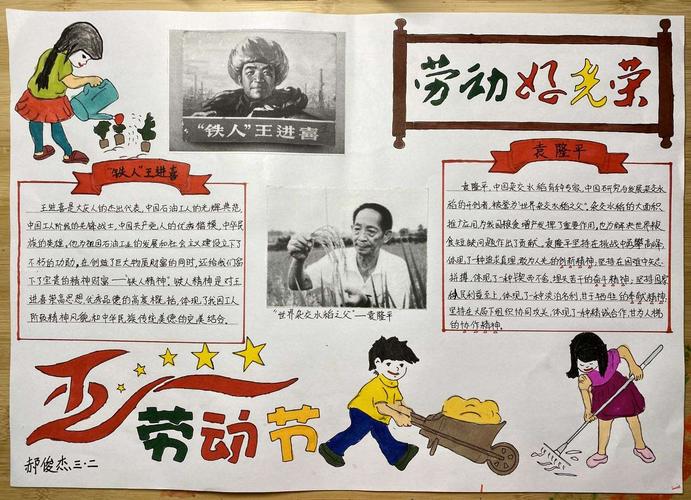 劳动好光荣
"铁人"王进喜
"铁人"王进喜
王进喜是大庆人的杰出代表,中国石油工人的光辉典范,
中国工人阶级的先锋战士,中国共产党人的优秀楷模,中华民
族的英雄。他为祖国石油工业的发展和社会主义建设立下了
不朽的功勋,在创造了巨大物质财富的同时,还给我们留
下了宝贵的精神财富——铁人精神。铁人精神是对王
进喜崇高思想、优秀品德的高度概括,体现了我国工人
阶级精神风貌和中华民族传统美德的完美结合。
袁隆平
袁隆平,中国杂交水稻育种专家,中国研究与发展杂交水
稻的开创者,被誉为"世界杂交水稻之父"。杂交水稻的大面积
推广应用为我国粮食增产发挥了重要作用,也为解决世界粮
食短缺问题作出了贡献。袁隆平坚持在挑战中勇攀高峰,
体现了一种追求真理、敢为人先的创新精神;坚持在困难中矢志
拼搏,体现了一种锲而不舍、埋头苦干的奋斗精神;坚持国家
人民利益至上,体现了一种淡泊名利、甘于牺牲的奉献精神;
坚持在大局下组织协同攻关,体现了一种精诚合作、甘为人梯
的协作精神。
"世界杂交水稻之父"——袁隆平
五一
劳动节
郝俊杰,三·二